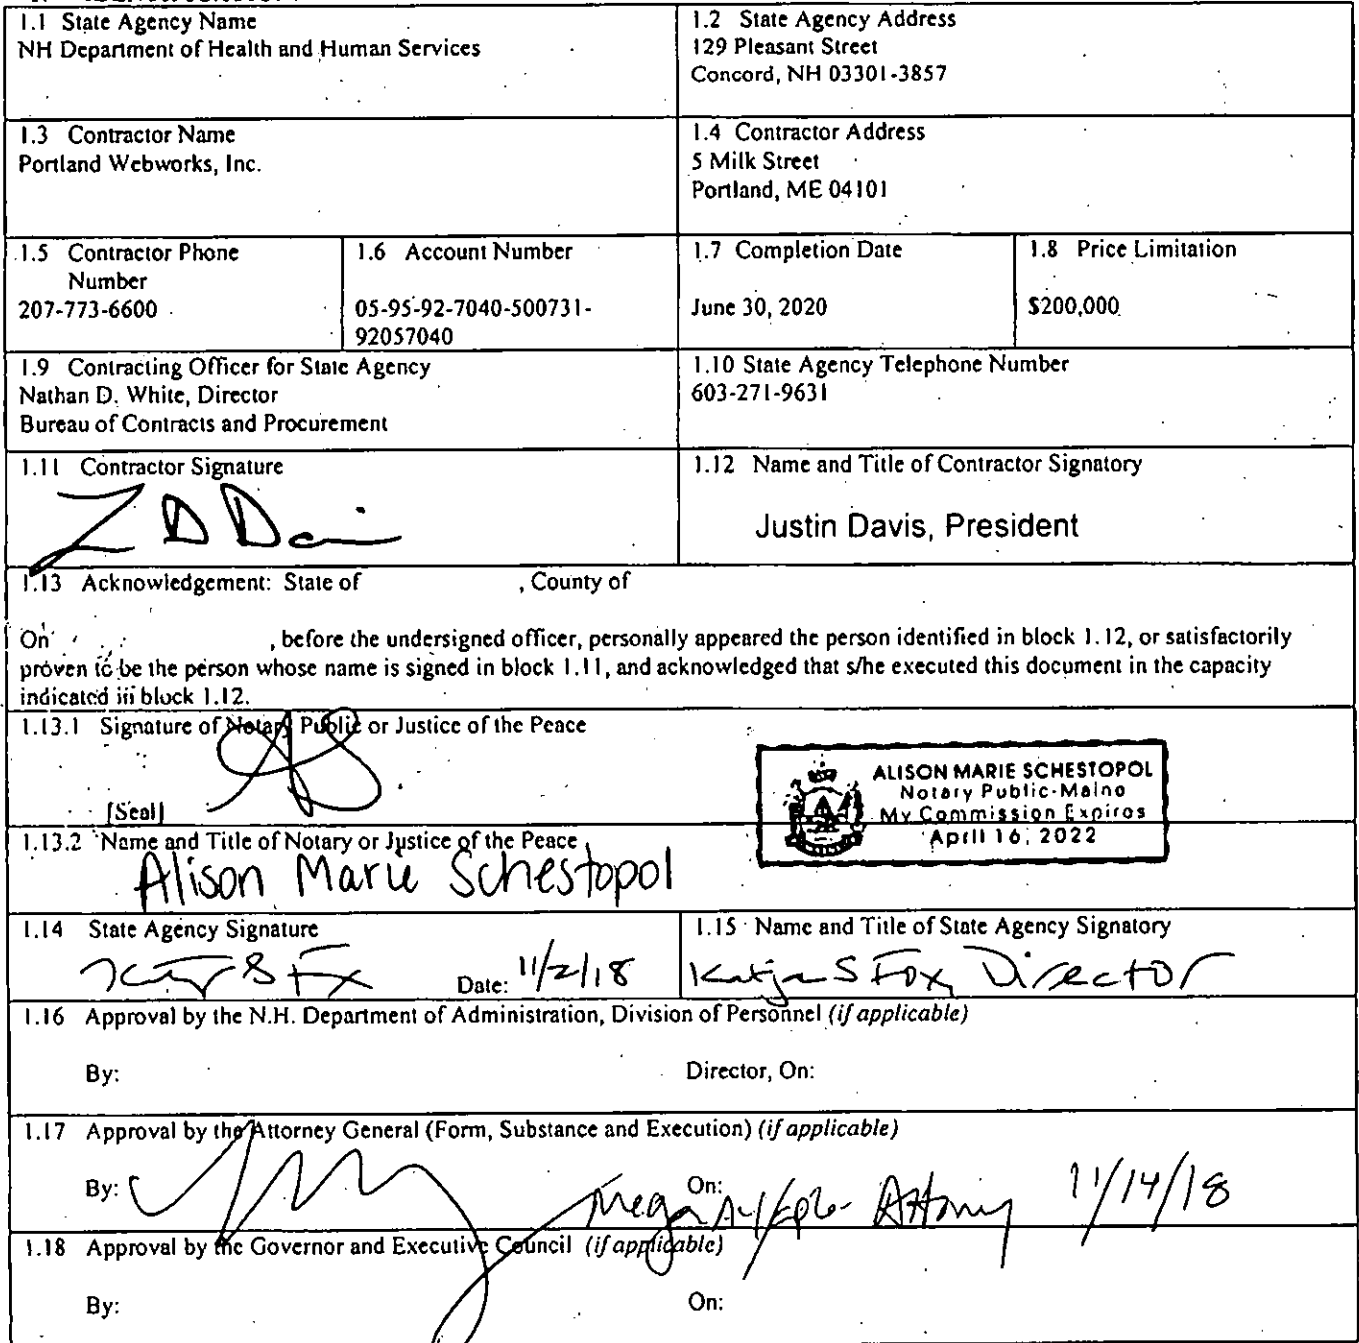 1.1 State Agency Name
NH Department of Health and Human Services
1.2 State Agency Address
129 Pleasant Street
Concord, NH 03301-3857
1.3 Contractor Name
Portland Webworks, Inc.
1.4 Contractor Address
5 Milk Street
Portland, ME 04101
1.5 Contractor Phone
Number
207-773-6600
1.6 Account Number
05-95-92-7040-500731-
92057040
1.7 Completion Date
June 30, 2020
1.8 Price Limitation
$200,000
1.9 Contracting Officer for State Agency
Nathan D. White, Director
Bureau of Contracts and Procurement
1.10 State Agency Telephone Number
603-271-9631
1.11 Contractor Signature
1.12 Name and Title of Contractor Signatory
Justin Davis, President
1.13 Acknowledgement: State of , County of
On , before the undersigned officer, personally appeared the person identified in block 1.12, or satisfactorily
proven to be the person whose name is signed in block 1.11, and acknowledged that s/he executed this document in the capacity
indicated in block 1.12.
1.13.1 Signature of Notary Public or Justice of the Peace
[Seal]
ALISON MARIE SCHESTOPOL
Notary Public-Maine
My Commission Expires
April 16, 2022
1.13.2 Name and Title of Notary or Justice of the Peace
Alison Marie Schestopol
1.14 State Agency Signature
Date: 11/2/18
1.15 Name and Title of State Agency Signatory
Katja S Fox, Director
1.16 Approval by the N.H. Department of Administration, Division of Personnel (if applicable)
By: Director, On:
1.17 Approval by the Attorney General (Form, Substance and Execution) (if applicable)
By: On: 11/14/18
1.18 Approval by the Governor and Executive Council (if applicable)
By: On: